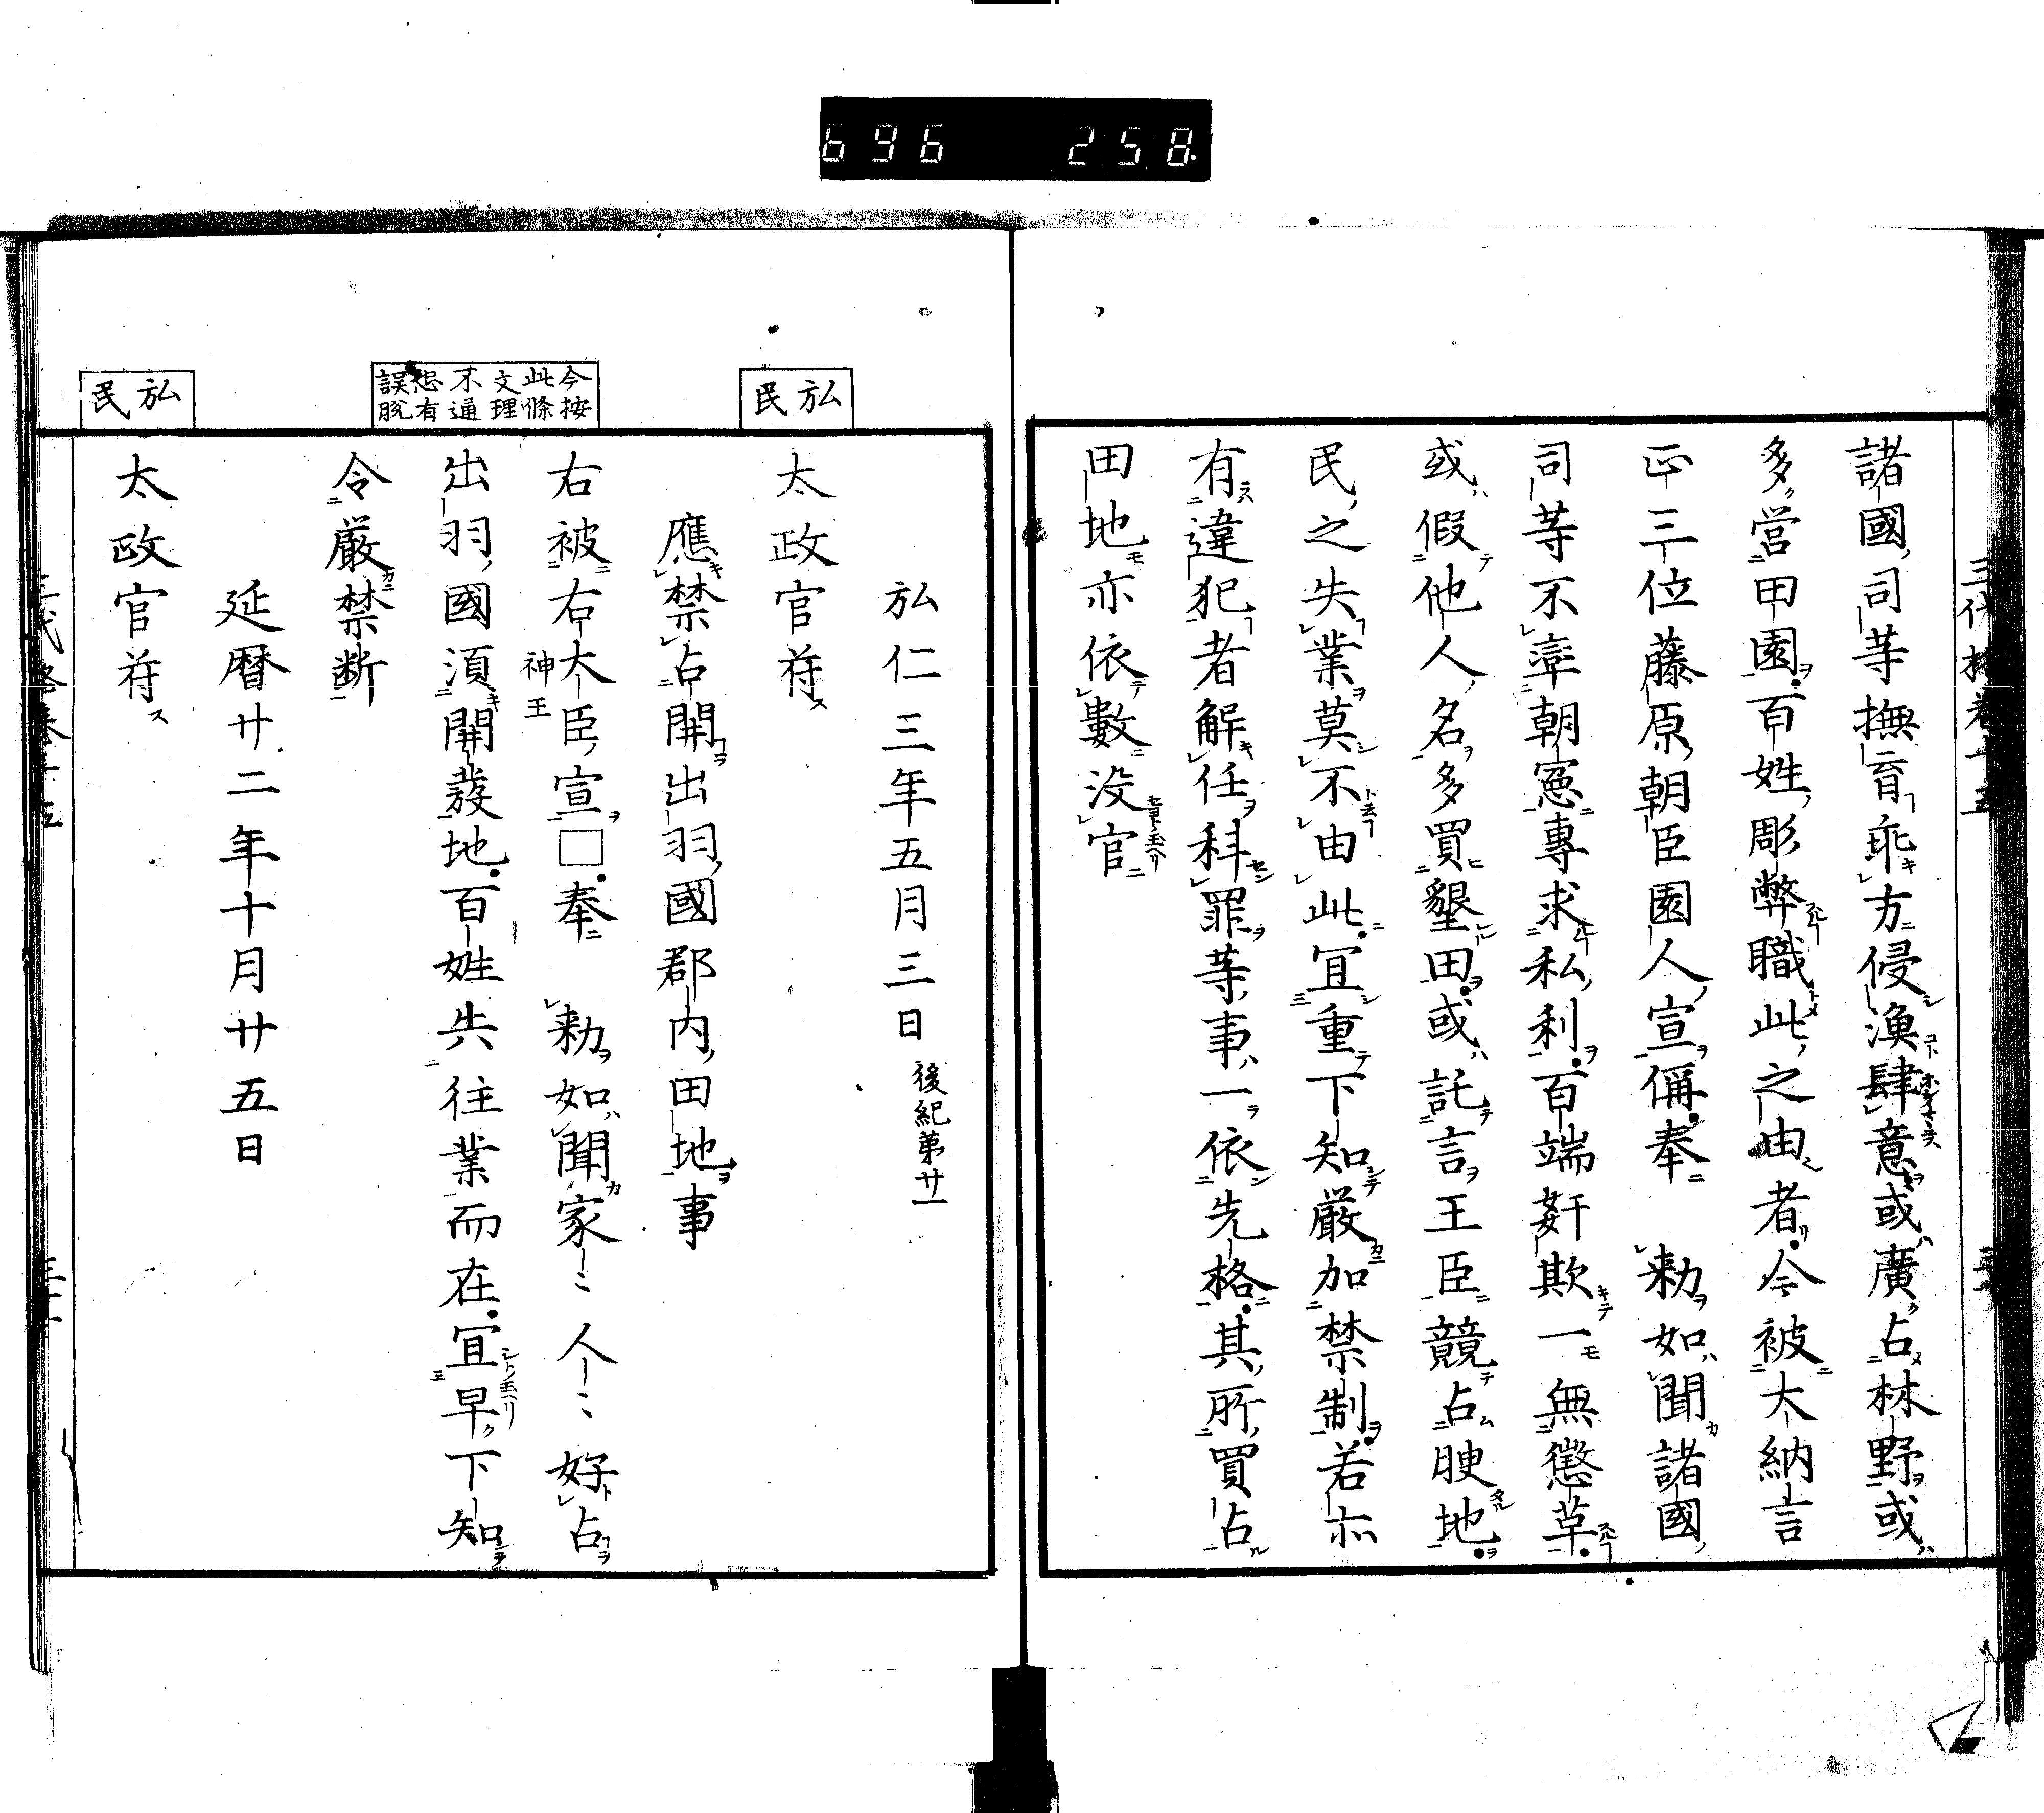 696 258
諸國司等撫育乖方侵漁肆意或廣占林野或
多營田園百姓彫弊職此之由者今被大納言
正三位藤原朝臣園人宣偁奉 勅如聞諸國
司等不率朝憲專求私利百端奸欺一無懲革
或假他人名多買墾田或託言王臣競占腴地
民之失業莫不由此宜重下知嚴加禁制若亦
有違犯者解任科罪等事一依先格其所買占
田地亦依數没官
弘仁三年五月三日 後紀第廿一
弘民
太政官符
應禁占開出羽國郡内田地事
右被右大臣宣□奉 勅如聞家〻人〻好占
神王
今按此條文理不通想有誤脱
出羽國須開發地百姓失往業而在宜早下知
令嚴禁断
延暦廿二年十月廿五日
弘民
太政官符